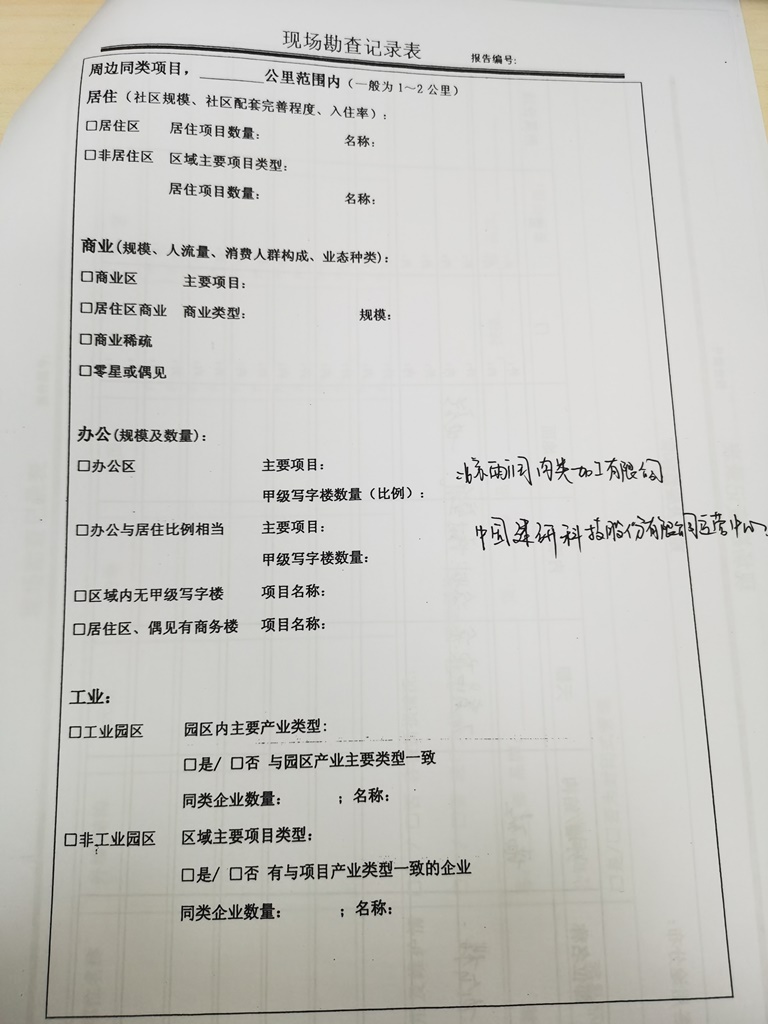 现场勘查记录表
报告编号:
周边同类项目，________公里范围内（一般为1～2公里）
居住（社区规模、社区配套完善程度、入住率）：
□居住区 居住项目数量： 名称：
□非居住区 区域主要项目类型：
居住项目数量： 名称：
商业(规模、人流量、消费人群构成、业态种类)：
□商业区 主要项目：
□居住区商业 商业类型： 规模：
□商业稀疏
□零星或偶见
办公(规模及数量)：
□办公区 主要项目： 雨润肉类加工有限公司
甲级写字楼数量（比例）：
□办公与居住比例相当 主要项目： 中国建研科技股份有限公司运营中心
甲级写字楼数量：
□区域内无甲级写字楼 项目名称：
□居住区、偶见有商务楼 项目名称：
工业：
□工业园区 园区内主要产业类型：
□是/ □否 与园区产业主要类型一致
同类企业数量： ；名称：
□非工业园区 区域主要项目类型：
□是/ □否 有与项目产业类型一致的企业
同类企业数量： ；名称：